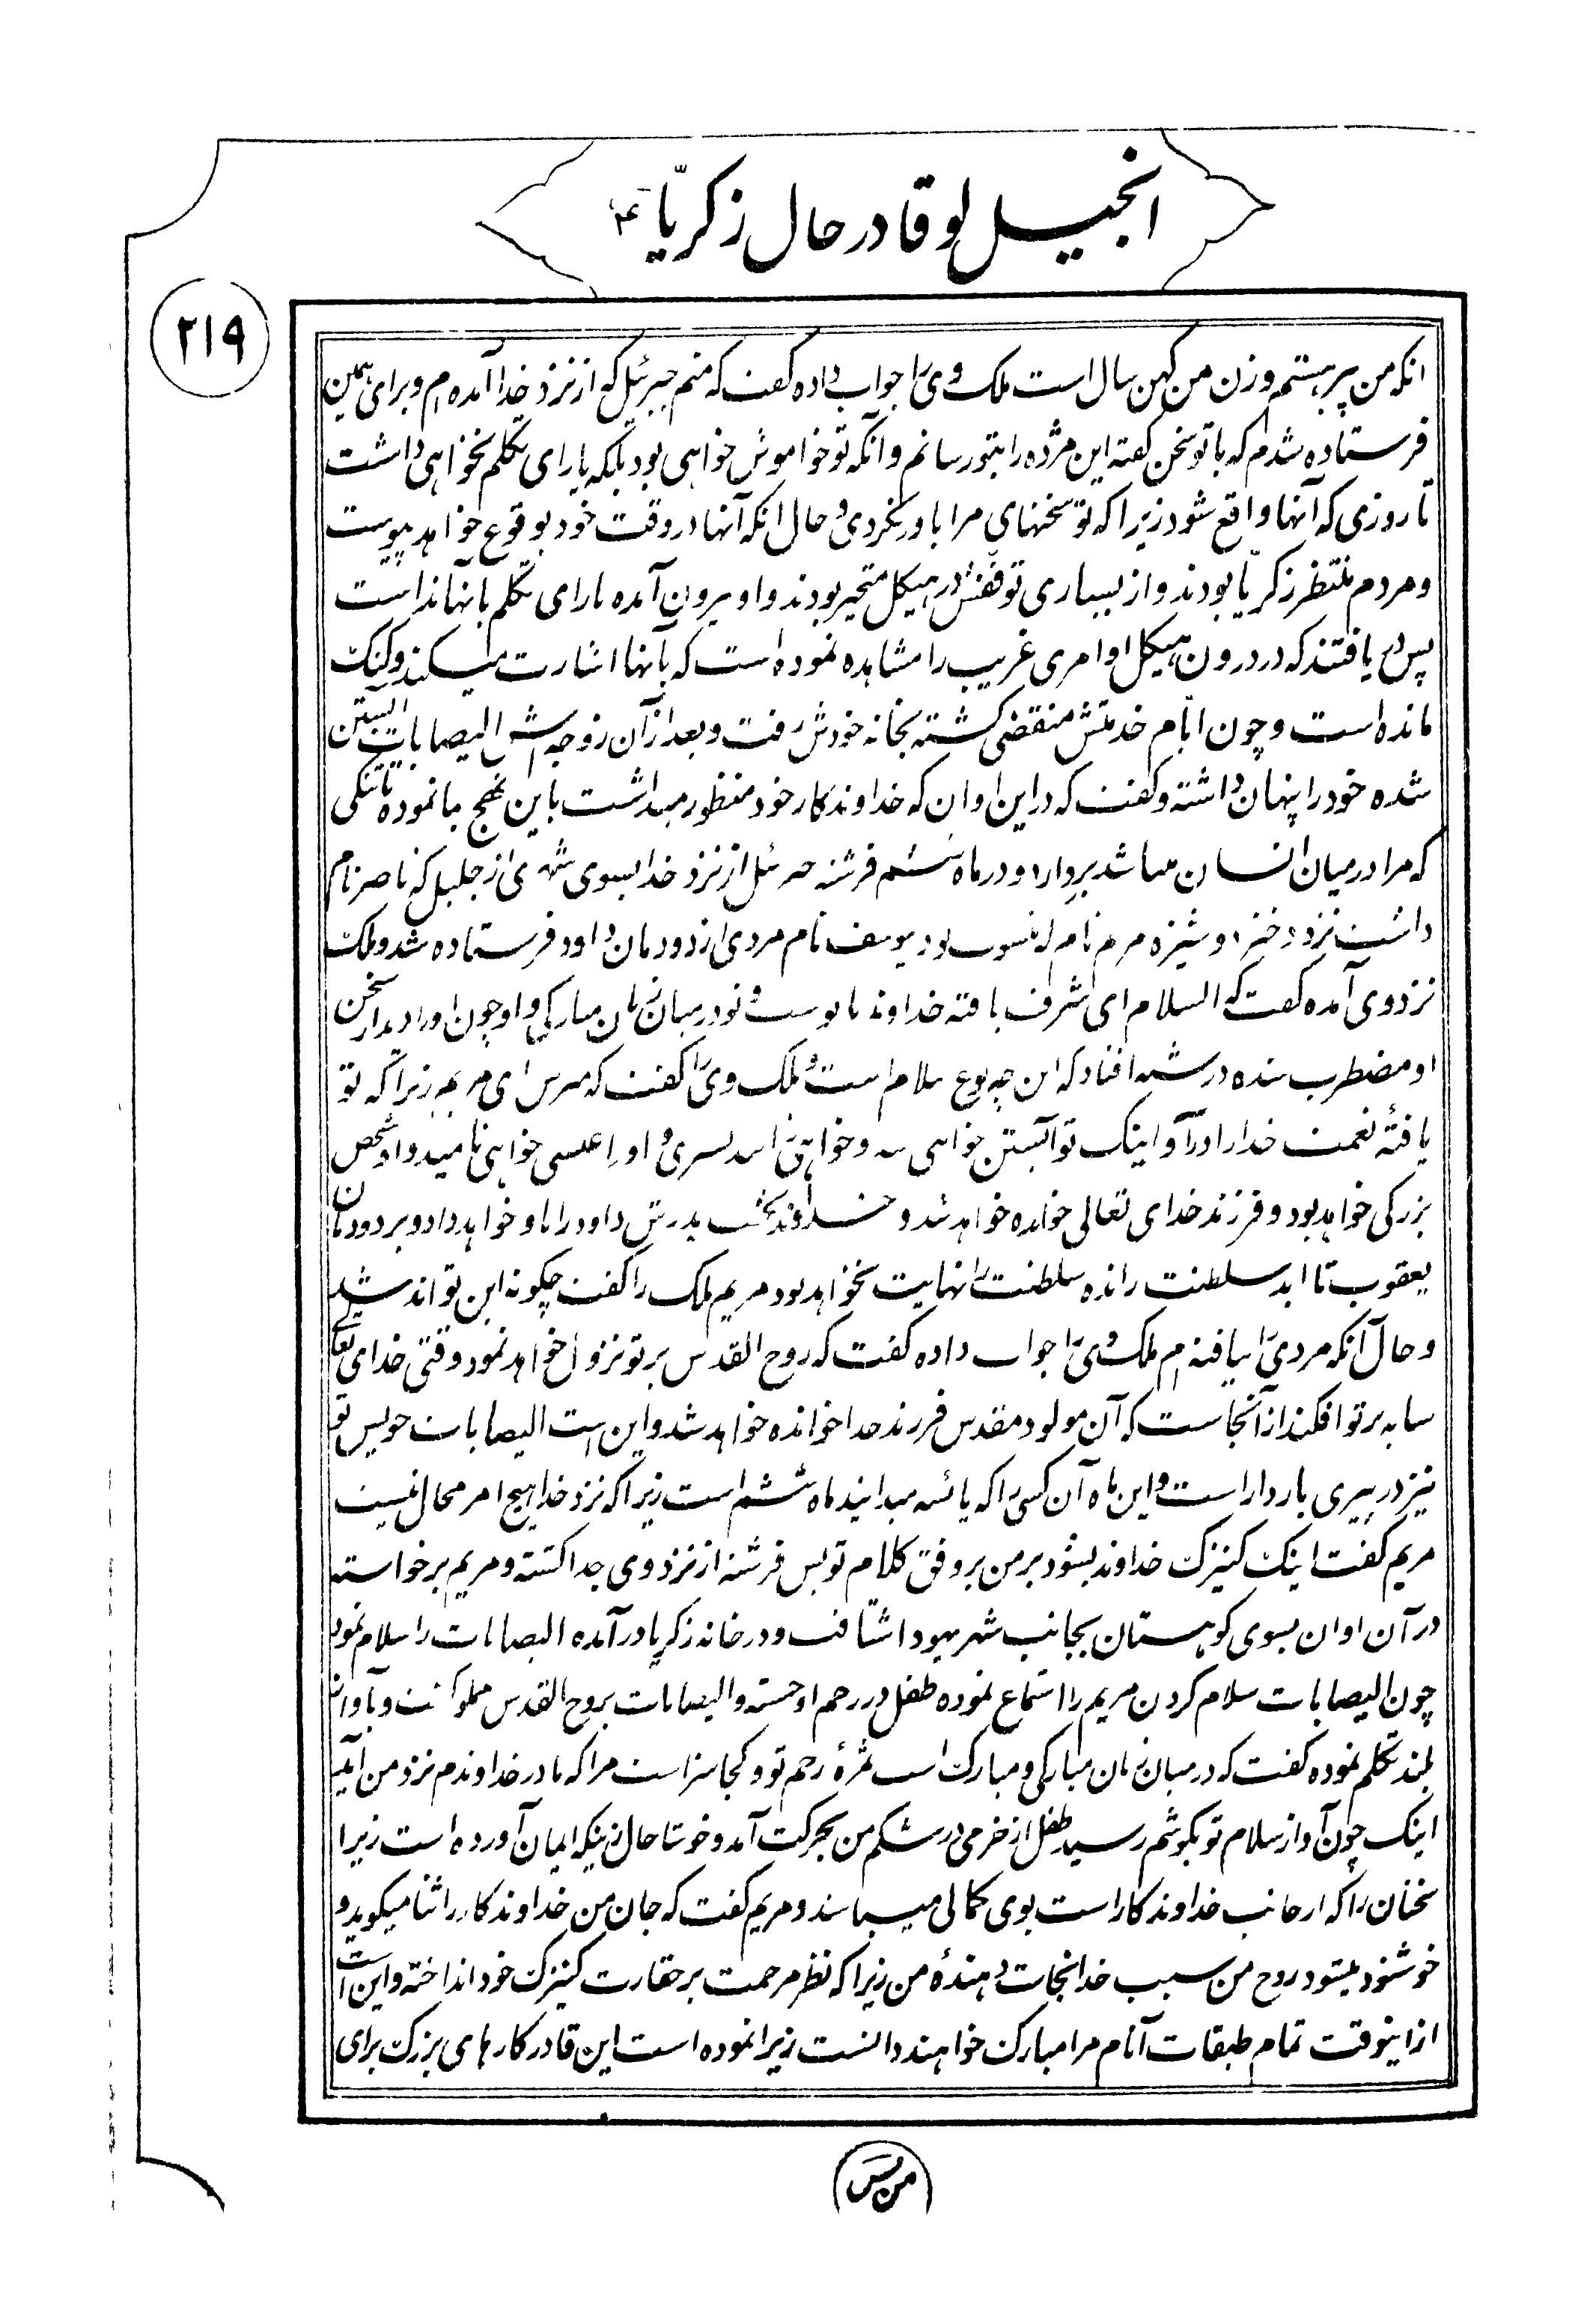 انجیل لوقا در حال زکریّا ع
۲۱۹
انکه من پیر هستم و زن من کهن سال است ملک وی را جواب داده کفت که منم جبرئیل که از نزد خدا آمده ام و برای همین
فرستاده شدم که با تو سخن کفته این مژده را بتو رسانم و آنکه تو خواموش خواهی بود بلکه یارای تکلم نخواهی داشت
تا روزی که آنها واقع شود زیرا که تو سخنهای مرا باور نکردی و حال انکه آنها در وقت خود بوقوع خواهد پیوست
و مردم منتظر زکریا بودند و از بسیاری توقفش در هیکل متحیر بودند و او بیرون آمده یارای تکلم بانها نداشت
پس دریافتند که در درون هیکل او امری غریب را مشاهده نموده است که بآنها اشارت میکند و کنک
مانده است و چون ایّام خدمتش منقضی کشته بخانه خودش رفت و بعد از آن زوجه اش الیصابات آبستن
شده خود را پنهان داشته و کفت که در این اوان که خداوند کار خود منظور میداشت باین نهج بما نموده تا ننکی
که مرا در میان انسان میباشد بردارد و در ماه ششم فرشته جبرئیل از نزد خدا بسوی شهری از جلیل که ناصر نام
داشت نزد دختر دوشیزه مریم نام که منسوب بود بیوسف نام مردی از دودمان داود فرستاده شد و ملک
نزد وی آمده کفت که السلام ای شرف یافته خداوند با توست و تو در میان زنان مبارکی و او چون او را دید از سخن
او مضطرب شده در شبه افتاد که این چه نوع سلام است و ملک وی را کفت که مترس ای مریم زیرا که تو
یافتهٔ نعمت خدا را در آ و اینک تو آبستن خواهی شد و خواهی زائید پسری و او را عیسی خواهی نامید و او شخص
بزرکی خواهد بود و فرزند خدای تعالی خوانده خواهد شد و خداوند تخت پدرش داود را باو خواهد داد و بر دودمان
یعقوب تا ابد سلطنت رانده سلطنتش را نهایت نخواهد بود مریم ملک را کفت چکونه این تواند شد
و حال آنکه مردی را نیافته ام ملک وی را جواب داده کفت که روح القدس بر تو نزول خواهد نمود وقتی خدای تعالی
سایه بر تو افکند از آنجاست که آن مولود مقدس فرزند خدا خوانده خواهد شد و این است الیصابات خویش تو
نیز در پیری باردار است و این ماه آن کسی را که یائسه میدانید ماه ششم است زیرا که نزد خدا هیچ امر محال نیست
مریم کفت اینک کنیزک خداوند بشود بر من بر وفق کلام تو پس فرشته از نزد وی جدا کشته و مریم برخواسته
در آن اوان بسوی کوهستان بجانب شهر یهودا شتافت و در خانه زکریا در آمده الیصابات را سلام نمود
چون الیصابات سلام کردن مریم را استماع نموده طفل در رحم او جسته و الیصابات بروح القدس مملو کشت و بآواز
بلند تکلم نموده کفت که در میان زنان مبارکی و مبارک است ثمرهٔ رحم تو و کجا سزاست مرا که مادر خداوندم نزد من آید
اینک چون آواز سلام تو بکوشم رسید طفل از خرمی در شکم من بحرکت آمد و خوشا حال زنیکه ایمان آورده است زیرا
سخنان را که از جانب خداوند کار است بوی کمالی میباشد و مریم کفت که جان من خداوند کار را ثنا میکوید و
خوشنود میشود روح من بسبب خدا نجات دهندهٔ من زیرا که نظر مرحمت بر حقارت کنیزک خود انداخته و این است
از اینوقت تمام طبقات آنام مرا مبارک خواهند دانست زیرا نموده است این قادر کارهای بزرک برای
من پس